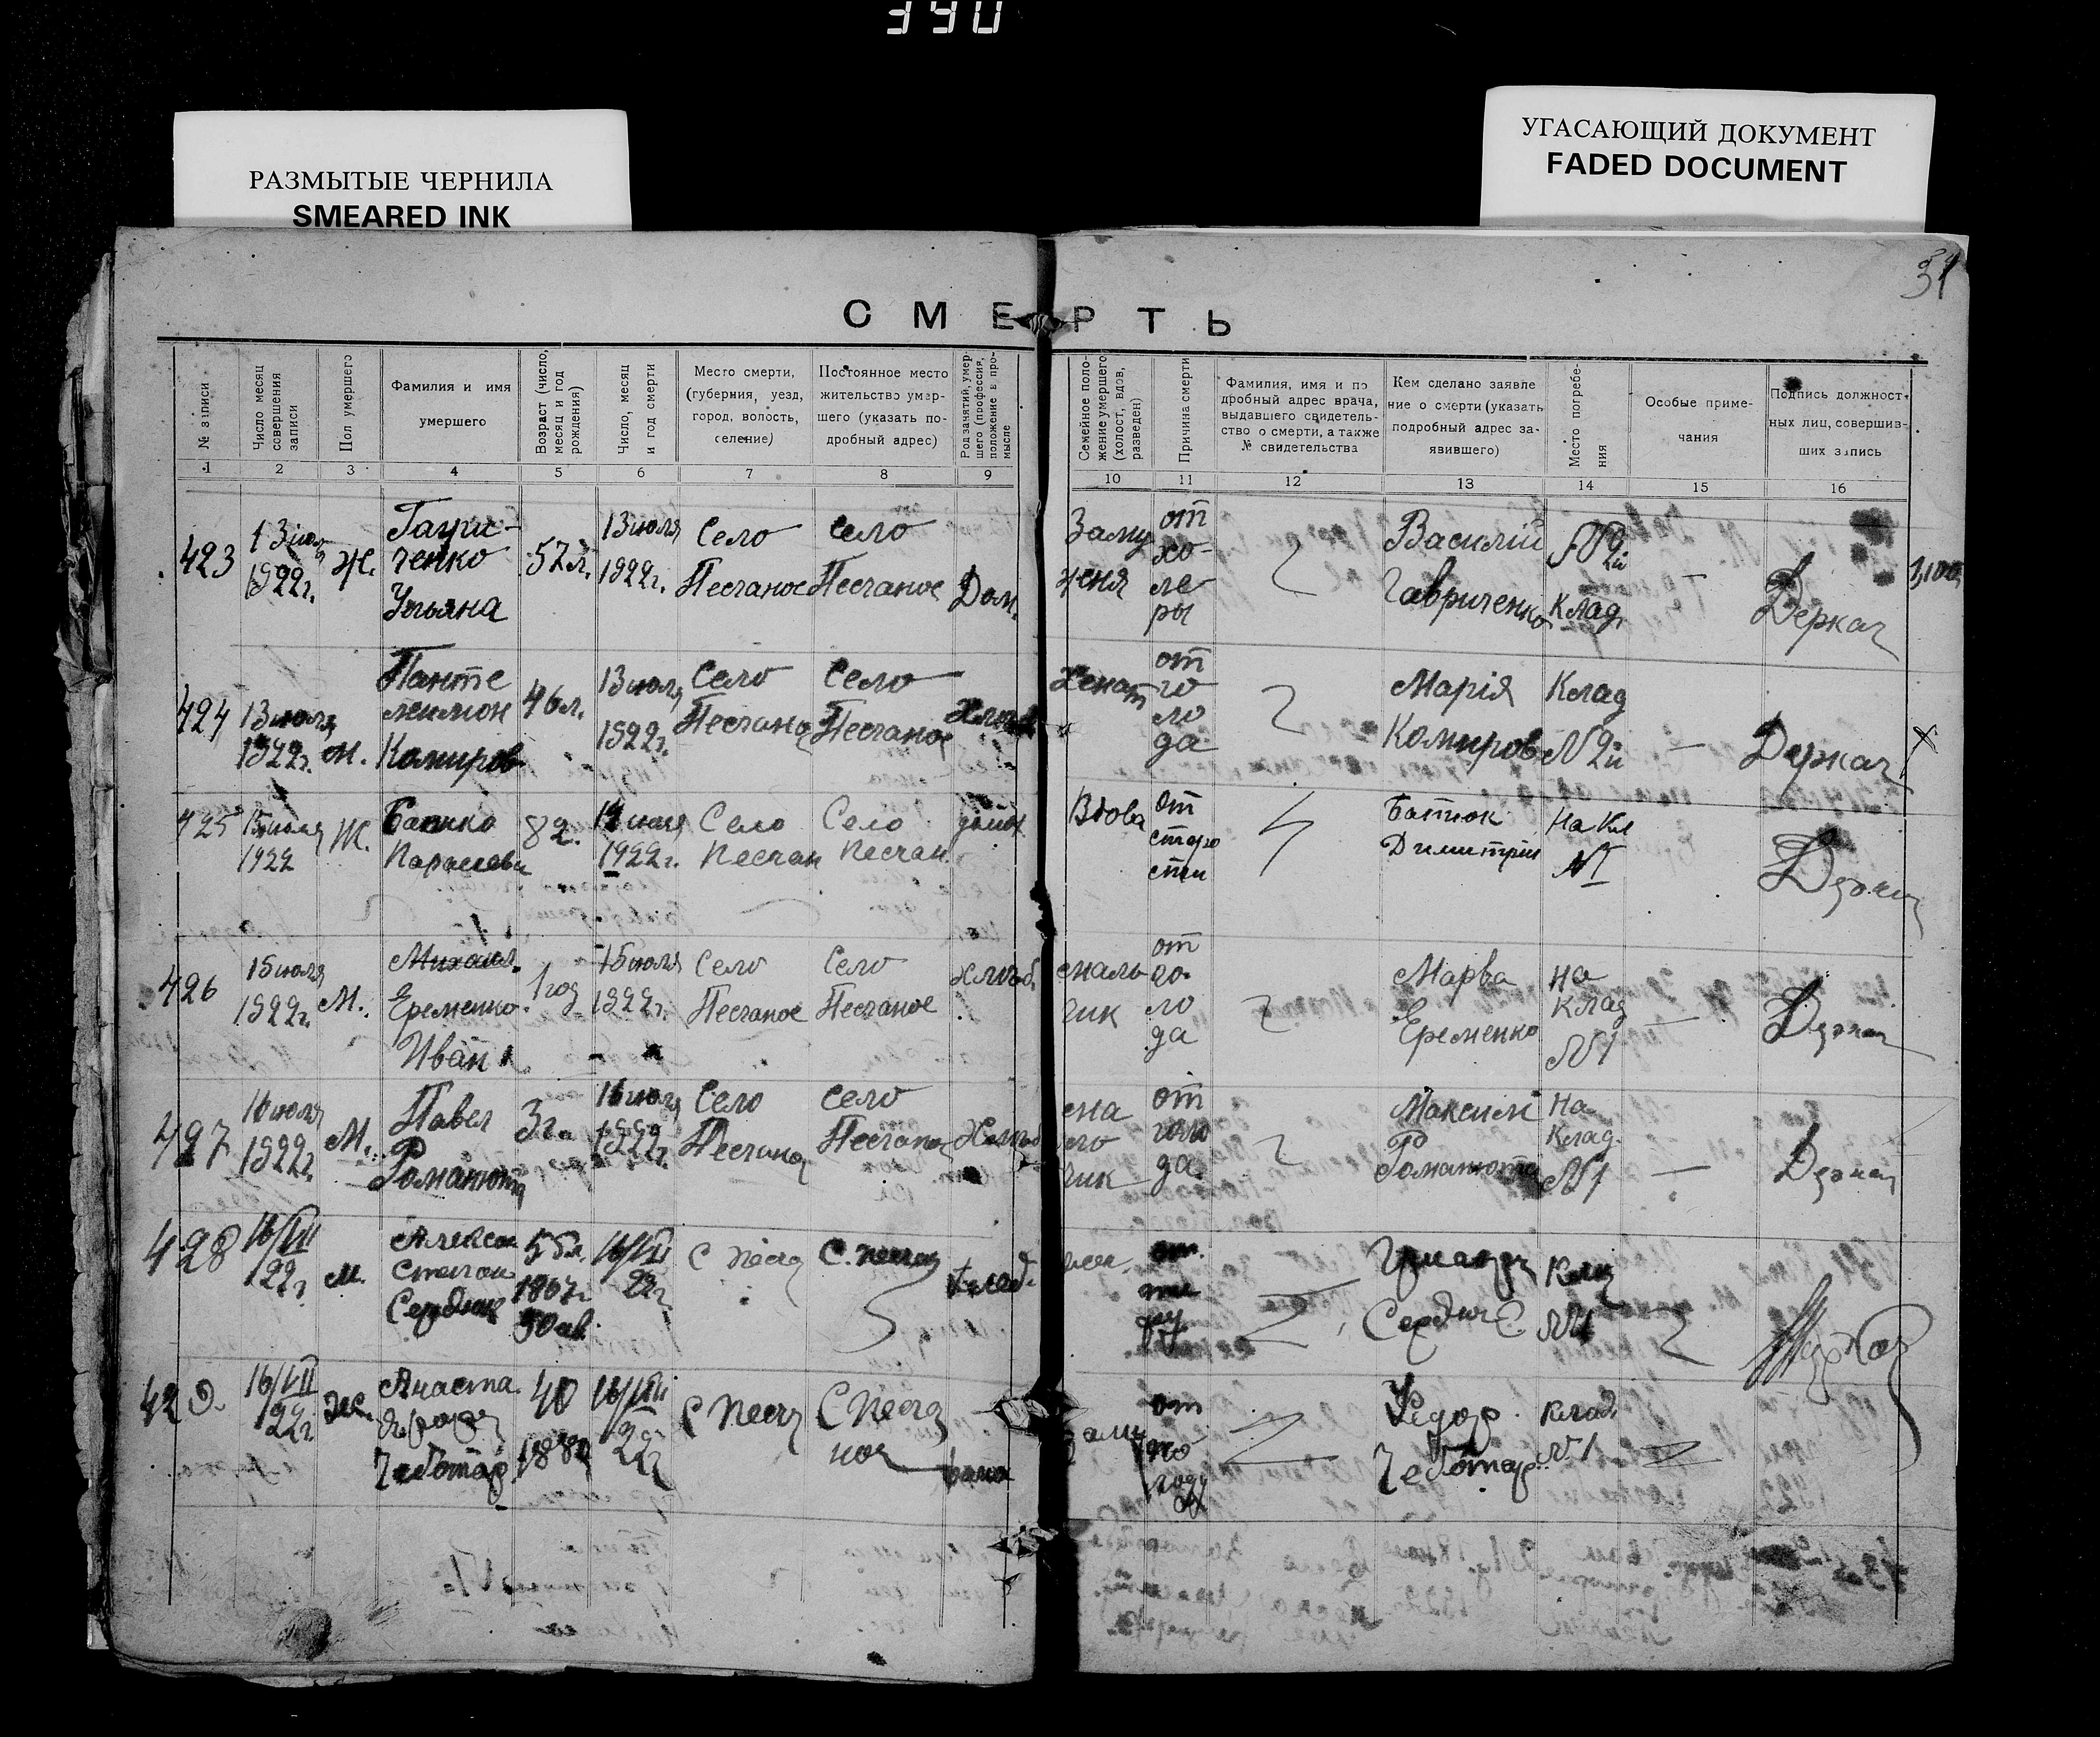 390
РАЗМЫТЫЕ ЧЕРНИЛА
SMEARED INK
УГАСАЮЩИЙ ДОКУМЕНТ
FADED DOCUMENT
31
СМЕРТЬ
№ записи
Число месяц
совершения
записи
Пол умершего
Фамилия и имя
умершего
Возраст (число,
месяц и год
рождения)
Число, месяц
и год смерти
Место смерти,
(губерния, уезд,
город, волость,
селение)
Постоянное место
жительство умер-
шего (указать по-
дробный адрес)
Род занятий, умер-
шего (профессия,
положение в про-
мысле
Семейное поло-
жение умершего
(холост, вдов,
разведен)
Причина смерти
Фамилия, имя и по
дробный адрес врача,
выдавшего свидетель-
ство о смерти, а также
№ свидетельства
Кем сделано заявле
ние о смерти (указать
подробный адрес за-
явившего)
Место погребе-
ния
Особые приме-
чания
Подпись должност-
ных лиц, совершив-
ших запись
1 2 3 4 5 6 7 8 9 10 11 12 13 14 15 16
423
13 июля
1922г.
Ж.
ченко
Ульяна
57 л.
13 июля
1922г.
Село
Песчаное
село
Песчаное
Дом.
Заму
женя
от
хо-
ле-
ры
Василий
Гавриченко
№ 2й
Клад.
—
Деркач
424
13 июля
1922г.
М.
Панте
леимон
Комиров
46 л.
13 июля
1922г.
Село
Песчаное
Село
Песчаное
Женат
от
го
ло
да
Марія
Комиров
Клад
№ 2й
—
Деркач
425
15 июля
1922
Ж.
Параскева
82.
1922г.
Село
Песчан
Село
Песчан
Вдова
от
старо
сти
Батюк
Димитрий
На Кл
№ I
Деркач
426
15 июля
1922г.
М.
Михаил
Еременко
Иван
1 год
15 июля
1922г.
Село
Песчаное
Село
Песчаное
хлеб.
маль
чик
от
го-
ло
да
Марва
Еременко
на
Клад
№ 1
—
Деркач
427
16 июля
1922г.
М.
Павел
Романюта
3 г.
16 июля
1922г.
Село
Песчаное
село
Песчаное
Хлеб
ма
ло
чик
от
голо
да
Максим
Романюта
на
Клад.
№ 1
—
Деркач
428
16/VII
22г
М.
Алексан
Степан
Сердюк
1867г
16/VII
22г.
С Песч
С. Песчан
хлеб.
от
Сердюк
Клад
№ 1
Деркач
429.
16/VII
22г.
Ж.
Анаста
Чеботар
40
16/VII
22г
С Песч
С Песча
ное
от
Федор
Чеботар.
Клад.
№ 1